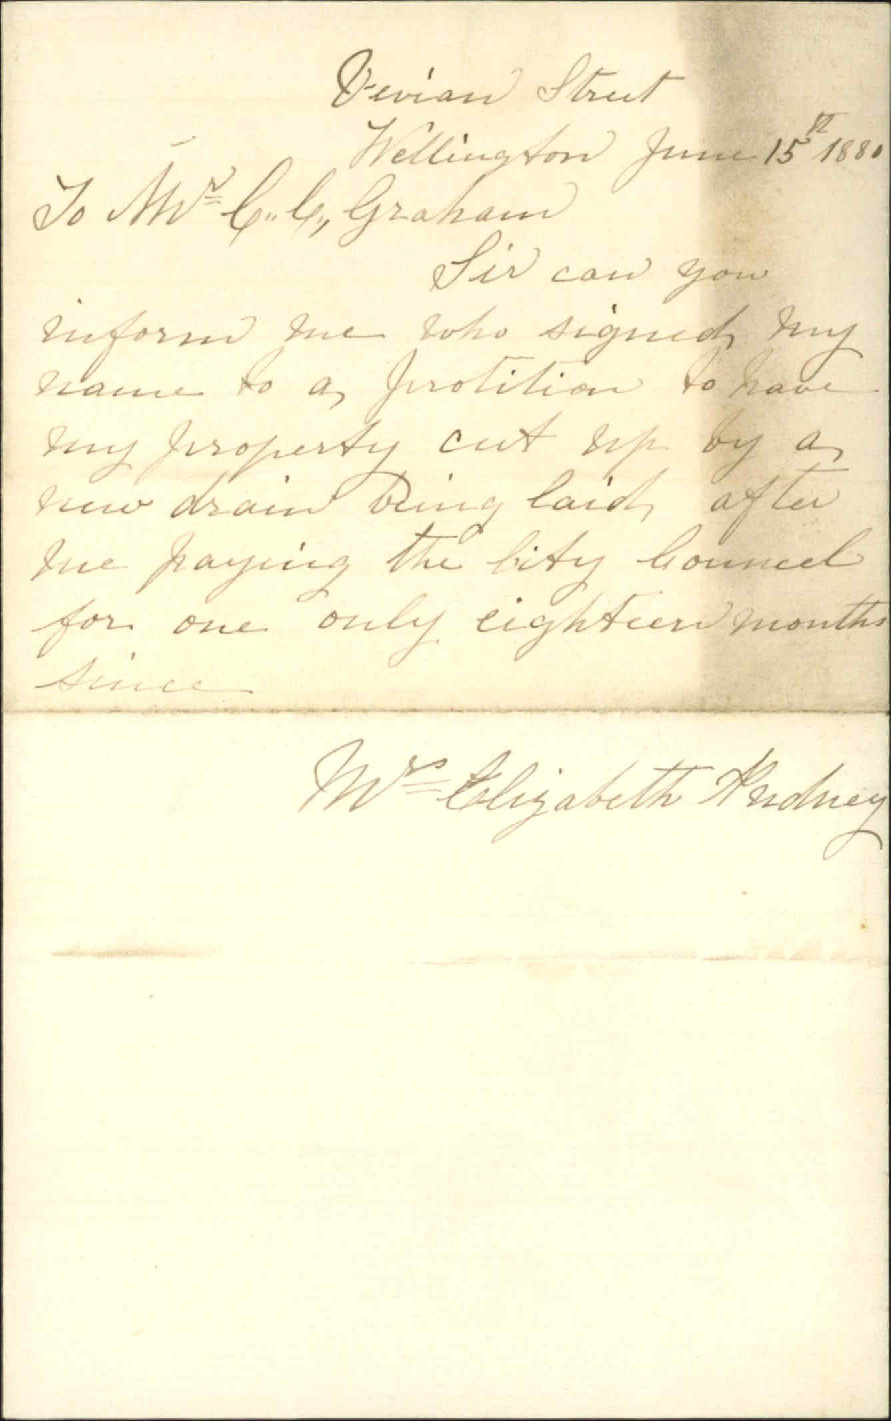 Vivian Street
Wellington June 15th 1880
To Mr C.. C.. Graham
Sir can you
inform me who signed my
name to a protition to have
my property cut up by a
new drain being laid after
me paying the City Councel
for one only eighteen months
since
Mrs Elizabeth